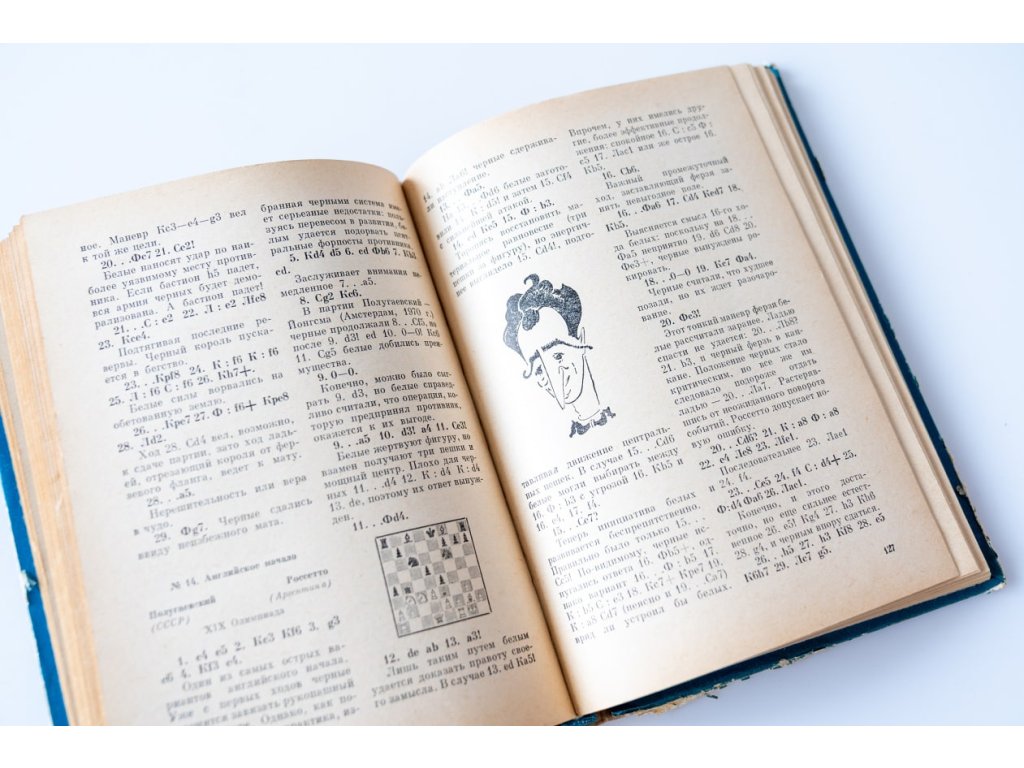 ное. Маневр Кс3—е4—g3 вел
к той же цели.
20. . .Фс7 21. Се2!
Белые наносят удар по наи-
более уязвимому месту против-
ника. Если бастион h5 падет,
вся армия черных будет демо-
рализована. И бастион падет!
21. . .С : е2 22. Л : е2 Лfe8
23. Ксе4.
Подтягивая последние ре-
зервы. Черный король пуска-
ется в бегство.
23. . .Крf8 24. К : f6 К : f6
25. Л : f6 С : f6 26. Кh7+.
Белые силы ворвались на
обетованную землю.
26. . .Кре7 27. Ф : f6+ Кре8
28. Лd2.
Ход 28. Сd4 вел, возможно,
к сдаче партии, зато ход ладь-
ей, отрезающий короля от фер-
зевого фланга, ведет к мату.
28. . .а5.
Нерешительность или вера
в чудо.
29. Фg7. Черные сдались
ввиду неизбежного мата.
№ 14. Английское начало
Полугаевский Россетто
(СССР) (Аргентина)
XIX Олимпиада
1. с4 е5 2. Кс3 Кf6 3. g3
с6 4. Кf3 е4.
Один из самых острых ва-
риантов английского начала.
Уже с первых ходов черные
завязать рукопашный
Однако, как по-
практика, из-
бранная черными система име-
ет серьезные недостатки: поль-
зуясь перевесом в развитии, бе-
лым удается подорвать цент-
ральные форпосты противника.
5. Кd4 d5 6. cd Фb6 7. Кb3
cd.
Заслуживает внимания не-
медленное 7. . .а5.
8. Сg2 Кс6.
В партии Полугаевский —
Йонгсма (Амстердам, 1970 г.)
черные продолжали 8. . .Сf5, но
после 9. d3! ed 10. 0—0! Кс6
11. Сg5 белые добились преи-
мущества.
9. 0—0.
Конечно, можно было сыг-
рать 9. d3, но белые справед-
ливо считали, что операция, ко-
торую предпринял противник,
окажется к их выгоде.
9. . .а5 10. d3! а4 11. Се3!
Белые жертвуют фигуру, но
взамен получают три пешки и
мощный центр. Плохо для чер-
ных 11. . .d4 12. К : d4 К : d4
13. dc, поэтому их ответ вынуж-
ден.
11. . .Фd4.
12. dc ab 13. а3!
Лишь таким путем белым
удается доказать правоту свое-
го замысла. В случае 13. ed Ка5!
14. ab Ла6! черные сдержива-
ли наступление.
13. . .Фа5.
Фd6 белые загото-
вили К : d5! и затем 15. Сf4
с сильной атакой.
14. ed Ке5 15. Ф : b3.
Торопясь восстановить ма-
териальное равновесие (три
пешки за фигуру), но энергич-
нее выглядело 15. Сf4!, подго-
тавливая движение централь-
ных пешек. В случае 15. . .Сd6
белые могли выбирать между
16. Ф : b3 с угрозой 16. Кb5 и
16. е4.
15. . .Се7?
Теперь инициатива белых
развивается беспрепятственно.
Правильно было 15. . .
Сс5! По-видимому, черные ис-
пугались ответа 16. Фb5+, од-
нако вариант 16. . .Ф : b5 17.
К : b5 С : е3 18. Кс7+ Кре7 19.
К : а8 Сd7 (неясно и 19. . .Са7)
вряд ли устроил бы белых.
Впрочем, у них имелись дру-
гие, более эффективные продол-
жения: спокойное 16. С : с5 Ф :
с5 17. Лас1 или же острое 16.
Кb5.
16. Сb6.
Важный промежуточный
ход, заставляющий ферзя за-
нять невыгодное поле.
16. . .Фа6 17. Сd4 Кеd7 18.
Кb5.
Выясняется смысл 16-го хо-
да белых: поскольку на 18. . .
Фа5 неприятно 19. d6 Сd8 20.
Фе3+, черные вынуждены ро-
кировать.
18. . .0—0 19. Кс7 Фа4.
Черные считали, что худшее
позади, но их ждет разочаро-
вание.
20. Фе3!
Этот тонкий маневр ферзя бе-
лые рассчитали заранее. Ладью
спасти не удается: 20. . .Лb8?
21. b3, и черный ферзь в кап-
кане. Положение черных стало
критическим, но все же им
следовало подороже отдать
ладью — 20. . .Ла7. Растеряв-
шись от неожиданного поворота
событий, Россетто допускает но-
вую ошибку.
20. . .Сd6? 21. К : а8 Ф : а8
22. е4 Ле8 23. Лfe1.
Последовательнее 23. Лае1
и 24. f4.
23. . .Се5 24. f4 С : d4+ 25.
Ф : d4 Фа6 26. Лас1.
Конечно, и этого доста-
точно, но еще сильнее естест-
венное 26. е5! Кg4 27. h3 Кh6
28. g4, и черным впору сдаться.
26. . .h5 27. h3 Кf8 28. е5
К6h7 29. Лс7 g5.
127